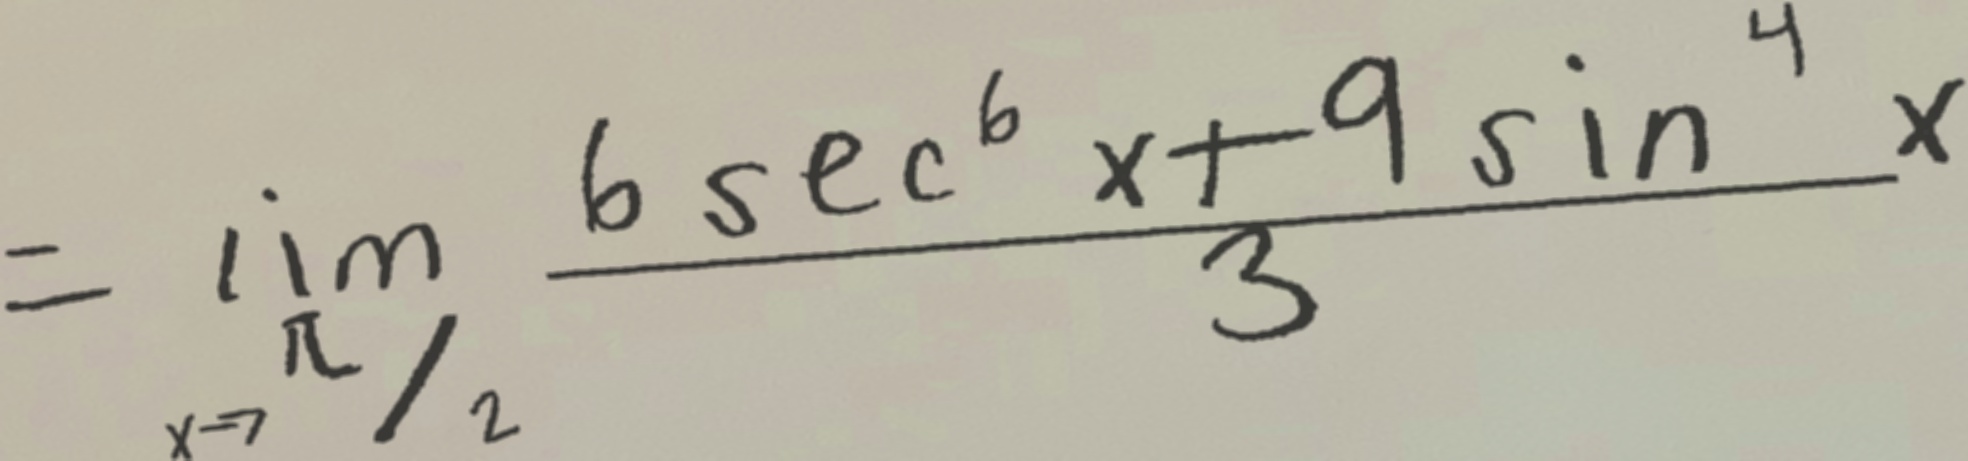 = lim x→π/2 (6 sec⁶ x + 9 sin⁴ x) / 3